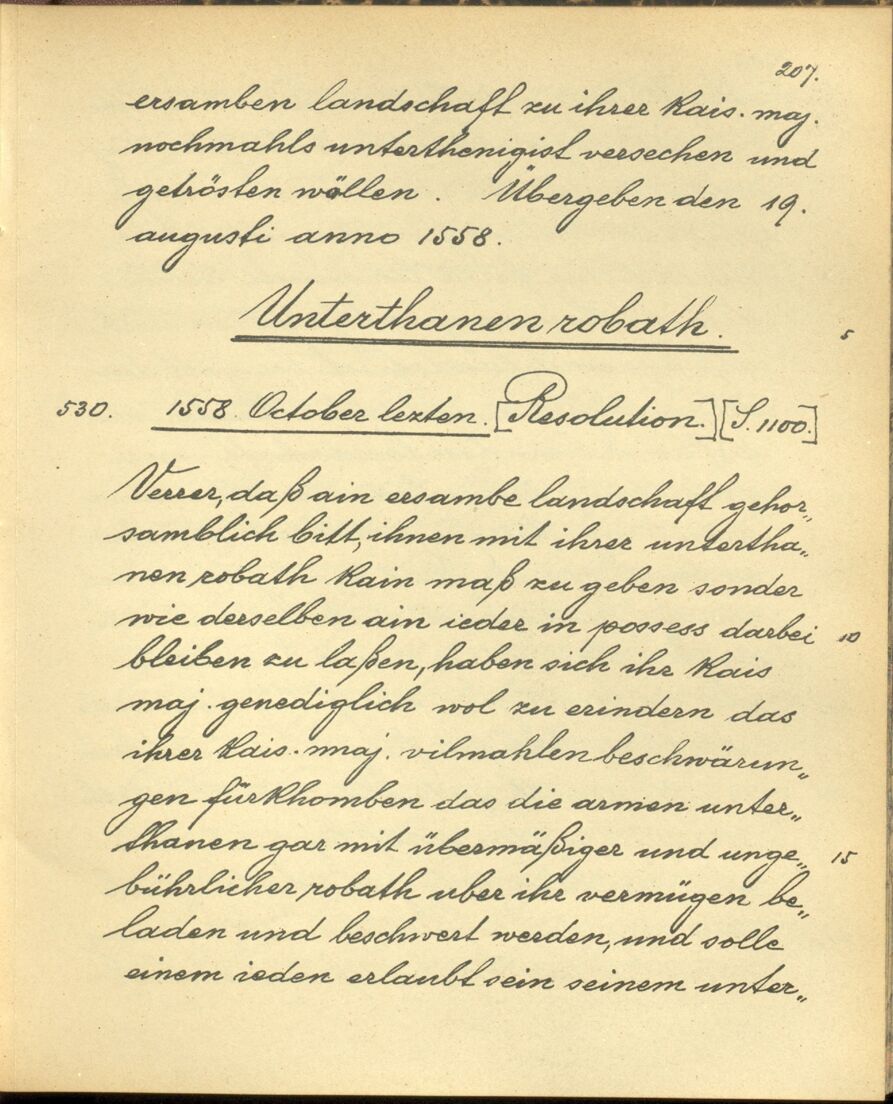 207.
ersamben landschaft zu ihrer Kais. maj.
nochmahls unterthenigist versechen und
getrösten wöllen. Übergeben den 19.
augusti anno 1558.
Unterthanen robath.
5
530. 1558. October lezten. [Resolution.] [S. 1100.]
Verrer, daß ain ersambe landschaft gehor„
samblich bitt, ihnen mit ihrer untertha„
nen robath Kain maß zu geben sonder
wie derselben ain ieder in possess darbei 10
bleiben zu laßen, haben sich ihr Kais
maj. genediglich wol zu erindern das
ihrer Kais. maj. vilmahlen beschwärun„
gen fürkhomben das die armen unter„
thanen gar mit übermäßiger und unge„ 15
bührlicher robath uber ihr vermügen be„
laden und beschwert werden, und solle
einem ieden erlaubt sein seinem unter„